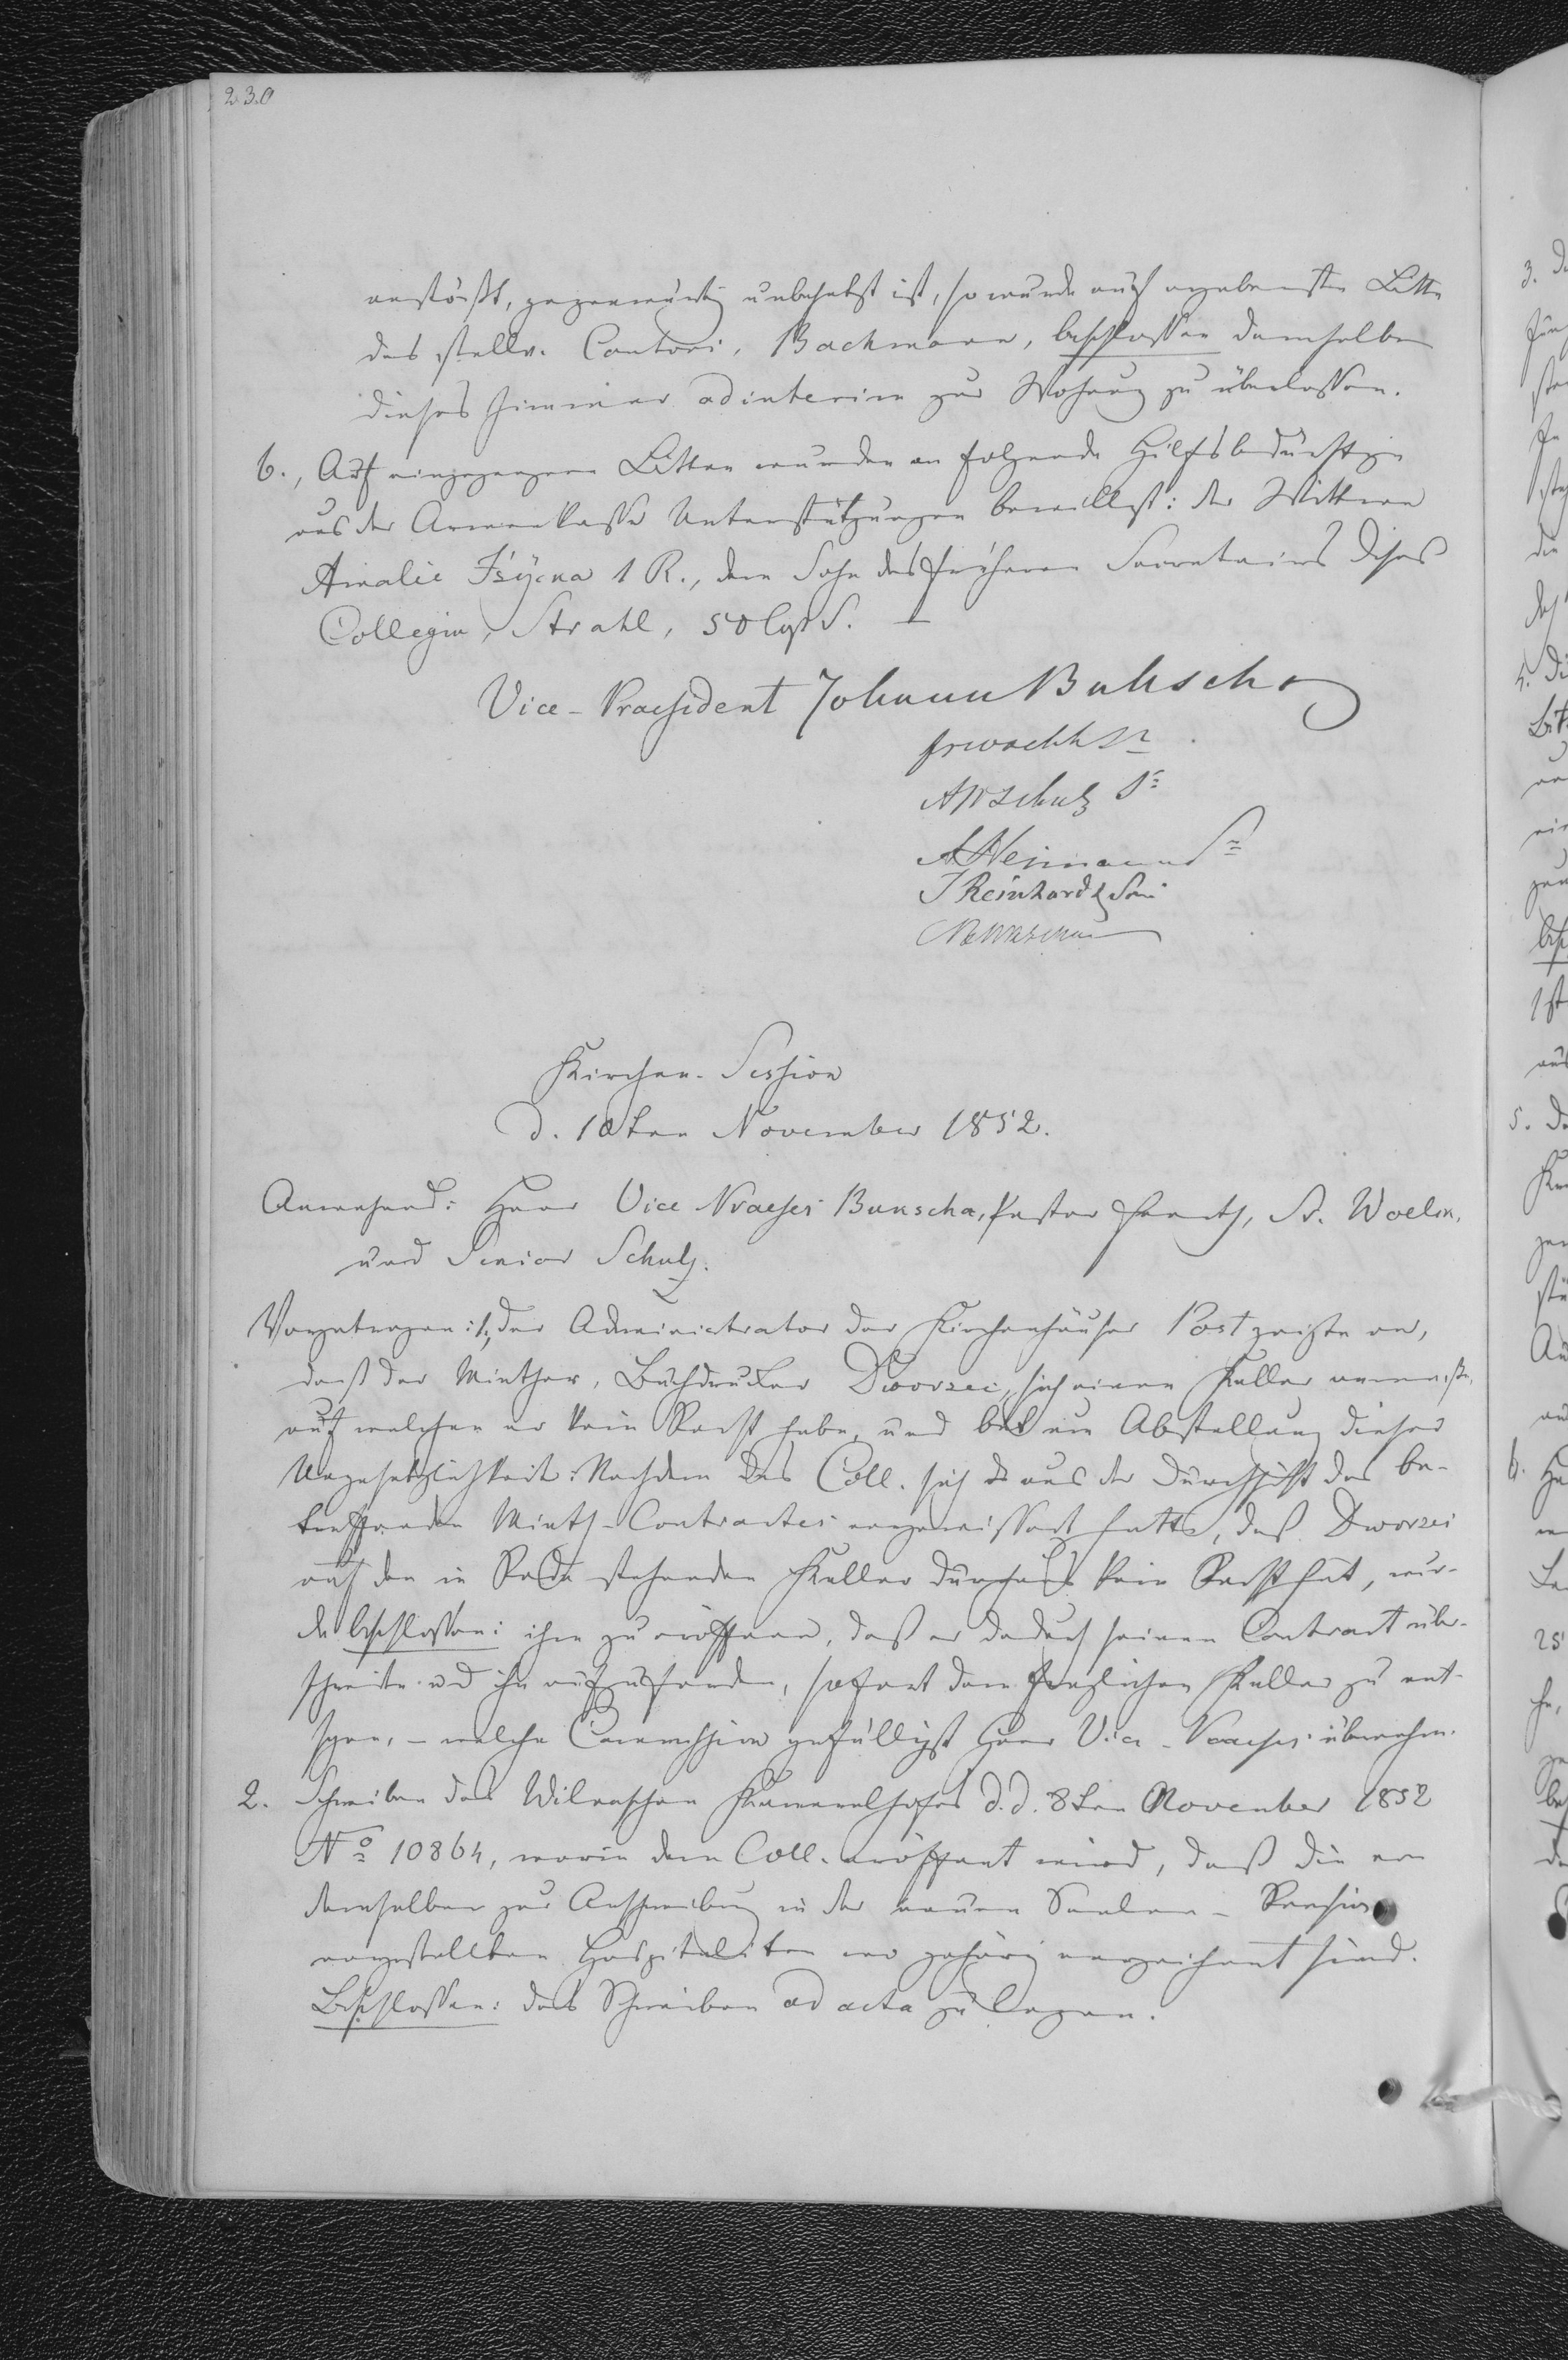 230
anstößt, gegenwärtig unbesetzt ist, so wurde auf ergebenste Bitte
des stellv. Cantors, Backmann, beschlossen demselben
dieses Zimmer ad interim zur Wohnung zu überlassen.
6., Auf eingegangene Bitten wurden an folgende Hilfsbedürftige
aus der Armenkasse Unterstützungen bewilligt: der Wittwe
Amalie 1 R., dem Sohn des früheren Secretairs dieses
Collegiu, Strahl, 50 Cop S. —
Vice-Praesident Johann Bukscha
A W Schulz Sr
A Heimann Sr
J Reinhardt Sen
Kirchen-Session
d. 10ten November 1852.
Anwesend: Herr Vice Praeses Bunscha, Pastor Sr. Woelk,
und Senior Schulz.
Vorgetragen: 1, der Administrator der Kirchenhäuser Post zeigte an,
daß der Miether, Buchdrucker Dworzec, sich einen Keller anmaße,
auf welchen er kein Recht habe, und bat um Abstellung dieser
Ungesetzlichkeit. Nachdem das Coll. sich aus der Durchsicht des be-
treffenden Mieth-Contractes vergewissert hatte, daß Dworzei
auf den in Rede stehenden Keller durchaus kein Recht hat, wur-
de beschlossen: ihm zu eröffnen, daß er dadurch seinen Contract über-
schreite und ihn aufzufordern, sofort dem fraglichen Keller zu ent-
sagen, – welche Commission gefälligst Herr Vice-Praeses übernahm.
2. Schreiben des Wilnaschen Kameralhofes d. d. 8ten November 1852
No 10864, worin dem Coll. eröffnet wird, daß die von
demselben zur Anschreibung in der neuen Seelen-Revision
vorgestellten Hospitaliten wo gehörig verzeichnet sind.
Beschlossen: das Schreiben ad acta zu legen.